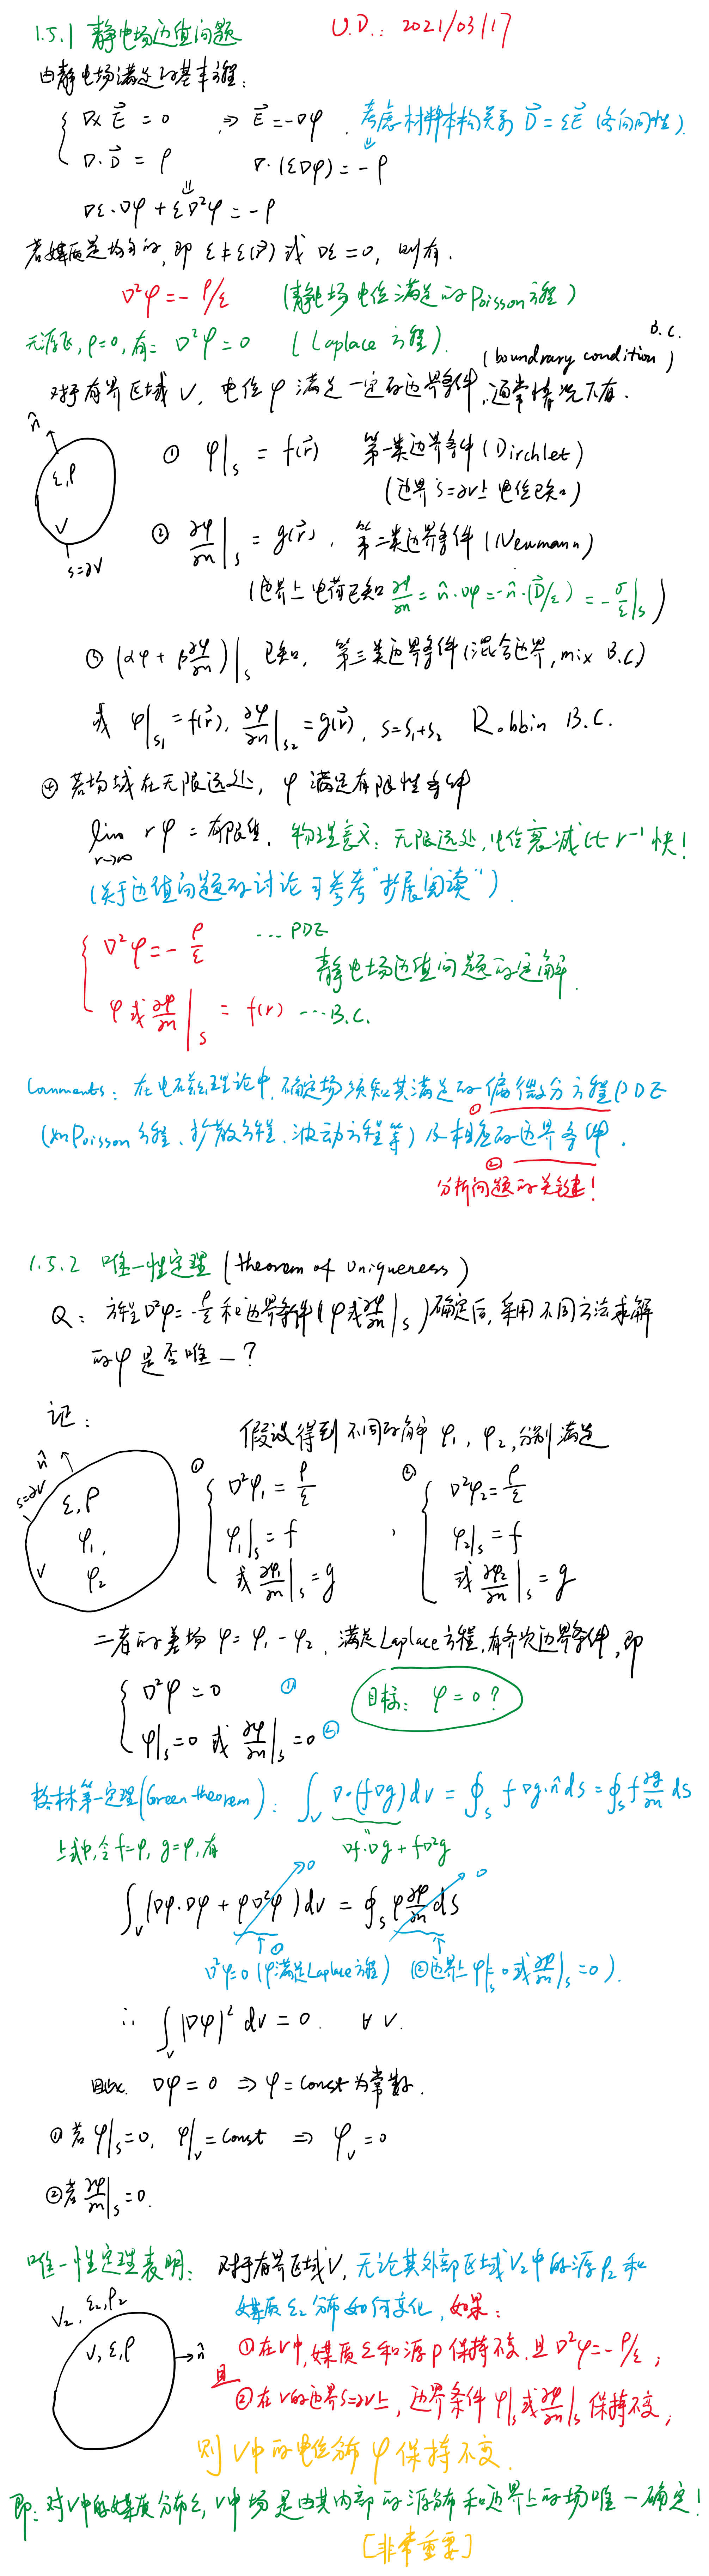 1.5.1 静电场边值问题 U.D.: 2021/03/17
由静电场满足的基本方程:
∇×E⃗ = 0 ⇒ E⃗ = -∇φ. 考虑材料本构关系 D⃗ = εE⃗ (各向同性)
∇·D⃗ = ρ ∇·(ε∇φ) = -ρ
∇ε·∇φ + ε∇²φ = -ρ
若媒质是均匀的, 即 ε≠ε(r⃗) 或 ∇ε=0, 则有.
∇²φ = -ρ/ε (静电场电位满足的Poisson方程)
无源区, ρ=0, 有: ∇²φ = 0 (Laplace 方程).
B.C.
(boundrary condition)
对于有界区域 V, 电位 φ 满足一定的边界条件, 通常情况下有.
n̂
ε,ρ
V
s=∂V
① φ|s = f(r⃗) 第一类边界条件 (Dirchlet)
(边界 s=∂V上 电位已知)
② ∂φ/∂n|s = g(r⃗), 第二类边界条件 (Neumann)
(边界上电荷已知 ∂φ/∂n = n̂·∇φ = -n̂·(D⃗/ε) = -σ/ε|s)
③ (αφ + β∂φ/∂n)|s 已知, 第三类边界条件 (混合边界, mix B.C.)
或 φ|s₁ = f(r⃗), ∂φ/∂n|s₂ = g(r⃗), S=S₁+S₂ Robbin B.C.
④ 若场域在无限远处, φ 满足有限性条件
lim r→∞ rφ = 有限值. 物理意义: 无限远处, 电位衰减比 r⁻¹ 快!
(关于边值问题的讨论可参考"扩展阅读").
∇²φ = -ρ/ε ... PDE
静电场边值问题的定解.
φ 或 ∂φ/∂n|s = f(r) ... B.C.
Comments: 在电磁理论中, 确定场须知其满足的偏微分方程PDE
①
(如Poisson方程、扩散方程、波动方程等) 及相应的边界条件.
②
分析问题的关键!
1.5.2 唯一性定理 (theorem of Uniqueness)
Q: 方程∇²φ=-ρ/ε 和边界条件(φ或∂φ/∂n|s)确定后, 采用不同方法求解
的φ是否唯一?
证:
假设得到不同的解 φ₁, φ₂, 分别满足
n̂
s=∂V
ε,ρ
φ₁,
φ₂
V
① ∇²φ₁ = ρ/ε , ② ∇²φ₂ = ρ/ε
φ₁|s = f φ₂|s = f
或 ∂φ₁/∂n|s = g 或 ∂φ₂/∂n|s = g
二者的差场 φ=φ₁-φ₂, 满足Laplace方程, 有齐次边界条件, 即
∇²φ = 0 ① 目标: φ=0?
φ|s=0 或 ∂φ/∂n|s=0 ②
格林第一定理(Green theorem): ∫v ∇·(f∇g)dv = ∮s f∇g·n̂ds = ∮s f ∂g/∂n ds
上式中, 令 f=φ, g=φ, 有 ∇f·∇g + f∇²g
∫v (∇φ·∇φ + φ∇²φ)dv = ∮s φ ∂φ/∂n ds
0 0
↑① ↑
∇²φ=0 (φ满足Laplace方程) (②边界上φ|s=0或∂φ/∂n|s=0).
∴ ∫v |∇φ|² dv = 0. ∀V.
因此 ∇φ = 0 ⇒ φ=Const 为常数.
① 若 φ|s=0, φ|v=Const ⇒ φv=0
② 若 ∂φ/∂n|s=0.
唯一性定理表明: 对于有界区域V, 无论其外部区域V₂中的源ρ₂和
媒质ε₂分布如何变化, 如果:
V₂, ε₂,ρ₂
V, ε,ρ
n̂
①在V中, 媒质ε和源ρ保持不变, 且∇²φ=-ρ/ε;
且
②在V的边界S=∂V上, 边界条件φ|s或∂φ/∂n|s保持不变;
则V中的电位分布φ保持不变.
即: 对V中的媒质分布ε, V中场是由其内部的源分布和边界上的场唯一确定!
[非常重要]